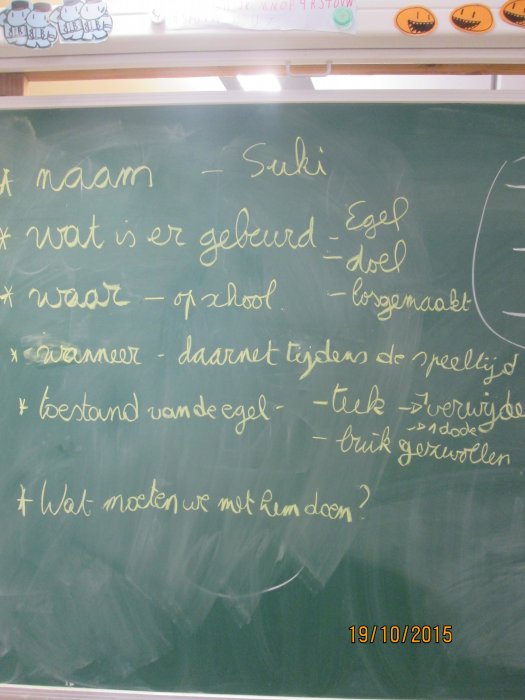 * naam - Suki
* wat is er gebeurd - Egel
- doel
* waar - op school. - losgemaakt
* wanneer - daarnet tijdens de speeltijd
* toestand van de egel - - teek → 1 verwijde
→ 1 dode
- buik gezwollen
* Wat moeten we met hem doen?
19/10/2015